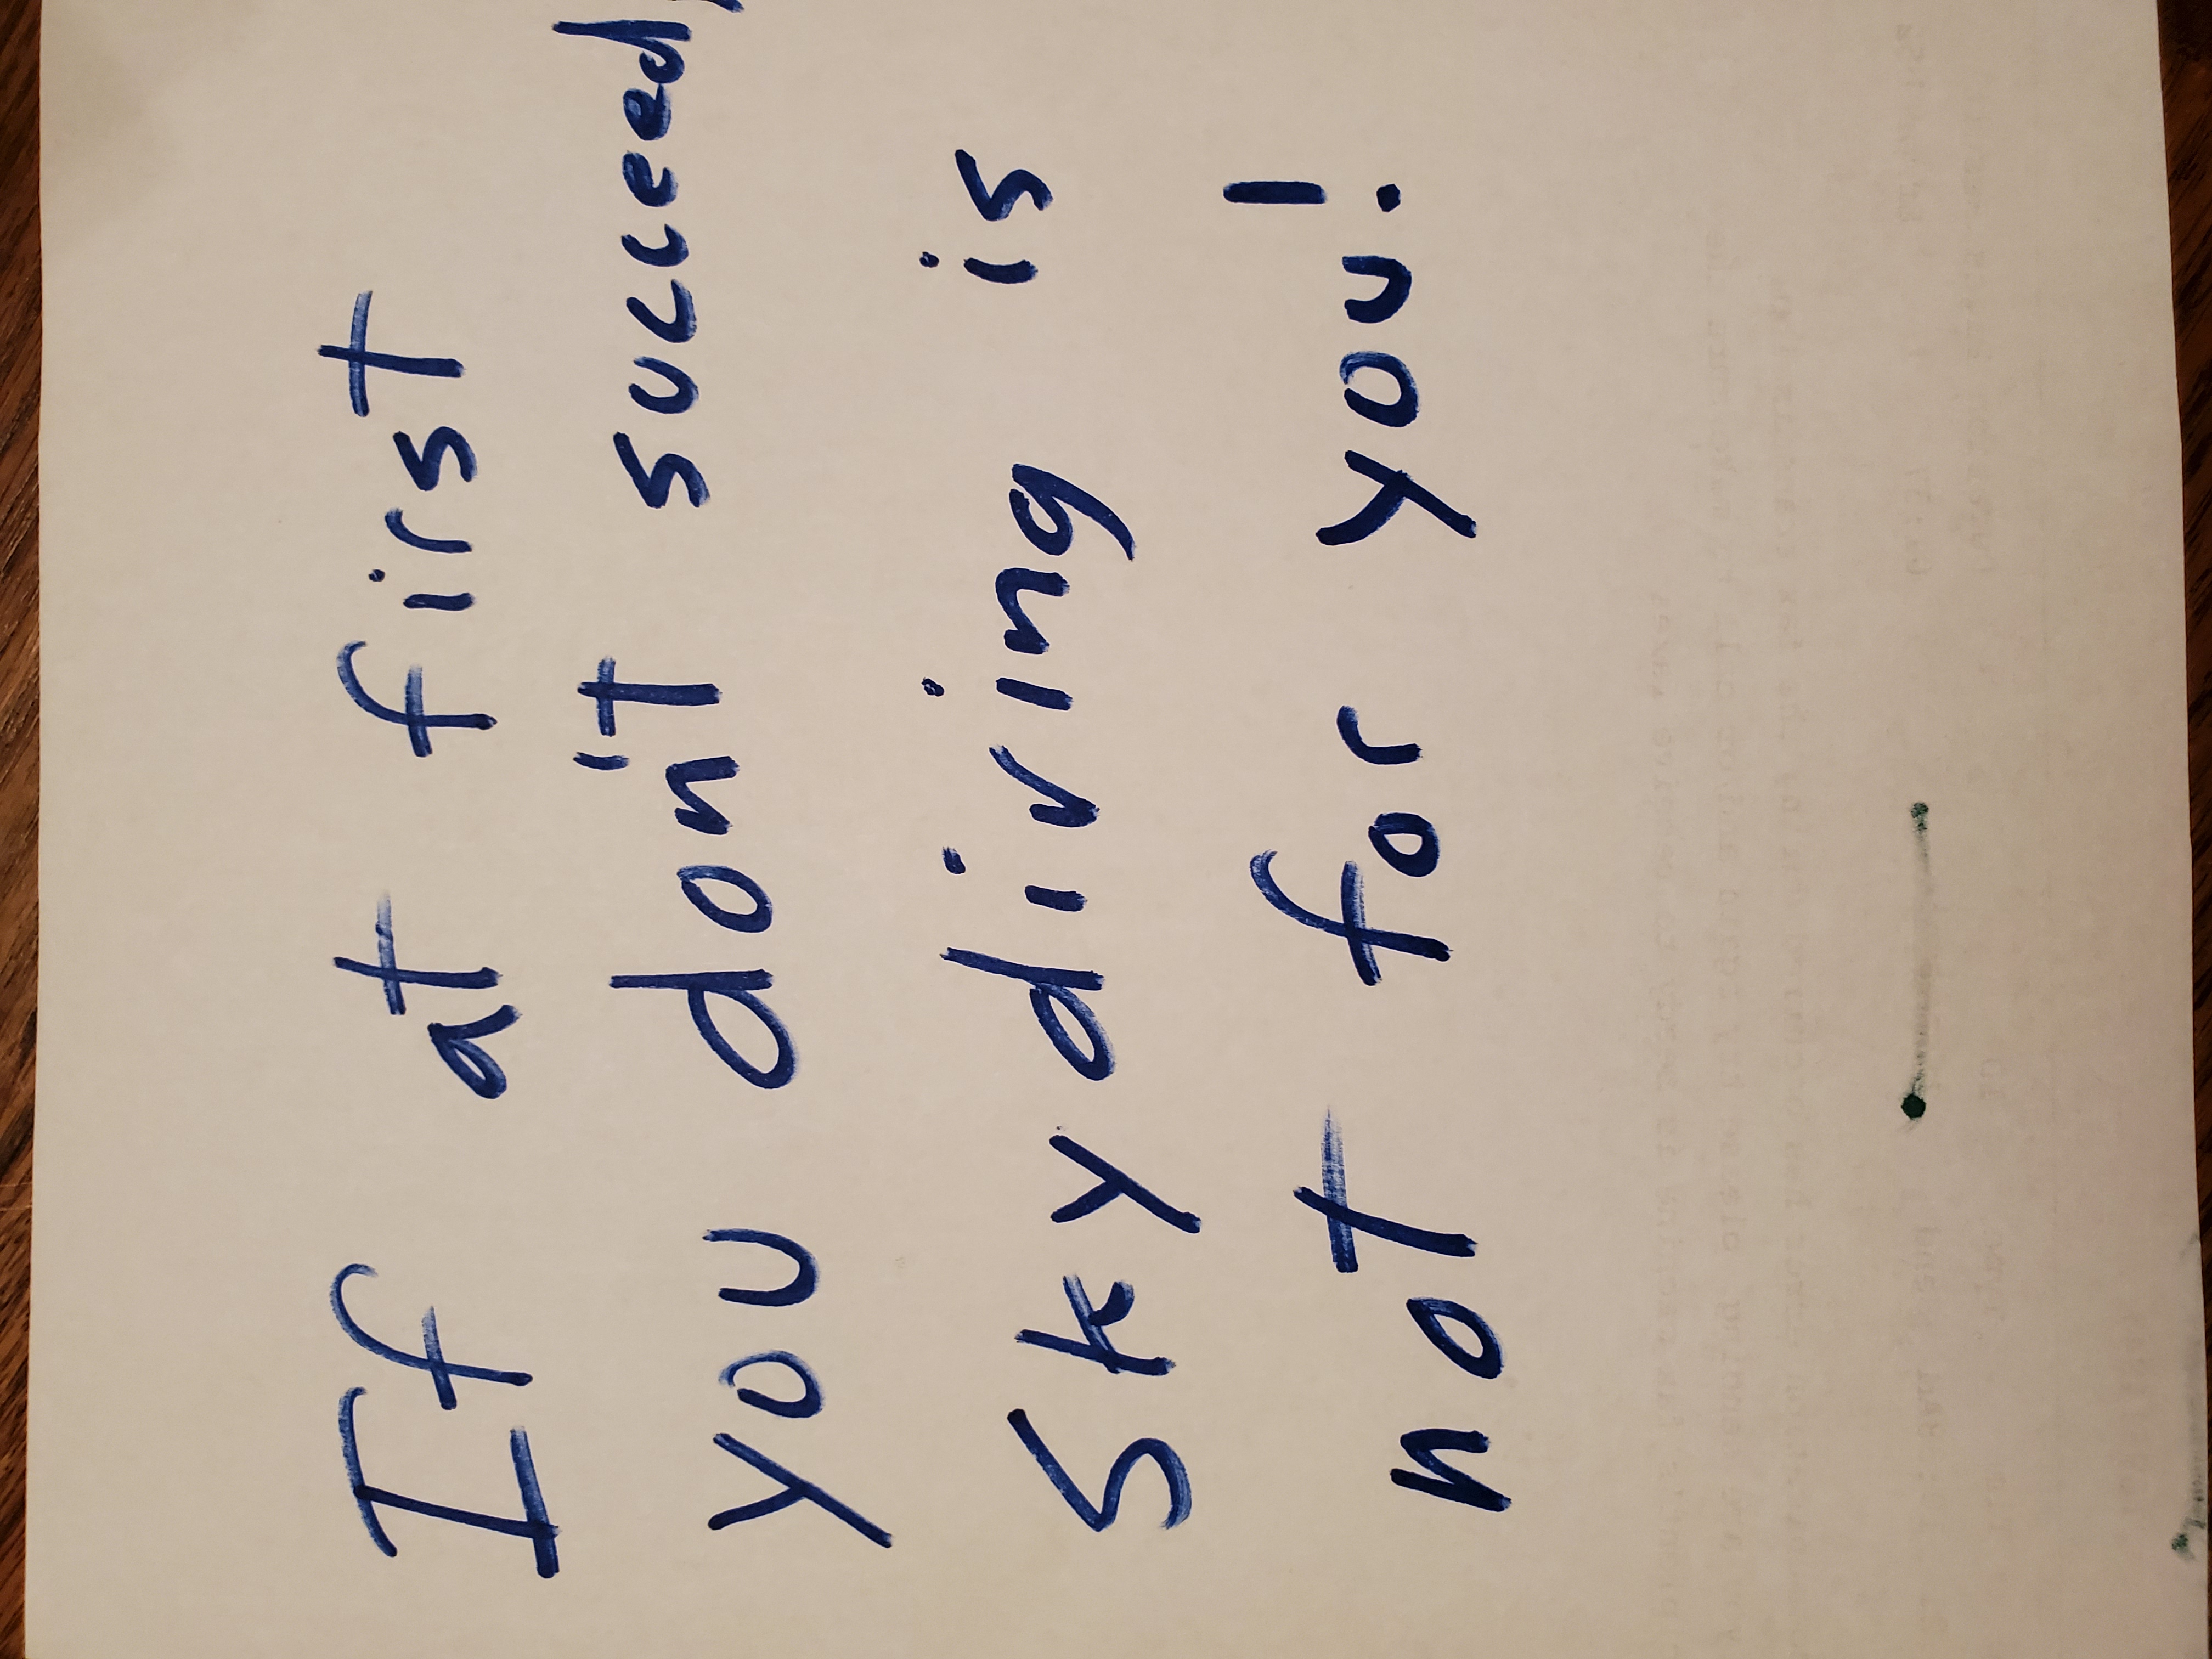 If at first
you don't succeed,
Sky diving is
not for you!